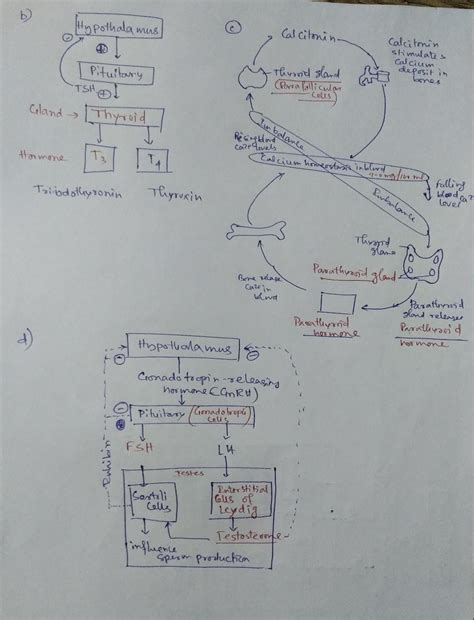 b)
Hypothalamus
Pituitary
TSH
Gland → Thyroid
Hormone
T3
T4
Thyroxin
c)
Calcitonin
Calcitonin
stimulates
calcium
deposit in
bones
Thyroid gland
(Parafollicular
cells)
Imbalance
Rising blood
levels
Calcium homeostasis in blood
Falling
blood
level
Imbalance
Thyroid
gland
Parathyroid gland
Parathyroid
gland releases
Parathyroid
hormone
Parathyroid
hormone
Bone release
in
blood
d)
Hypothalamus
Gonadotropin-releasing
hormone (GnRH)
Pituitary (Gonadotropic
cells)
FSH
LH
Inhibin
Testes
Sertoli
Cells
Interstitial
cells of
Leydig
Testosterone
influence
sperm production